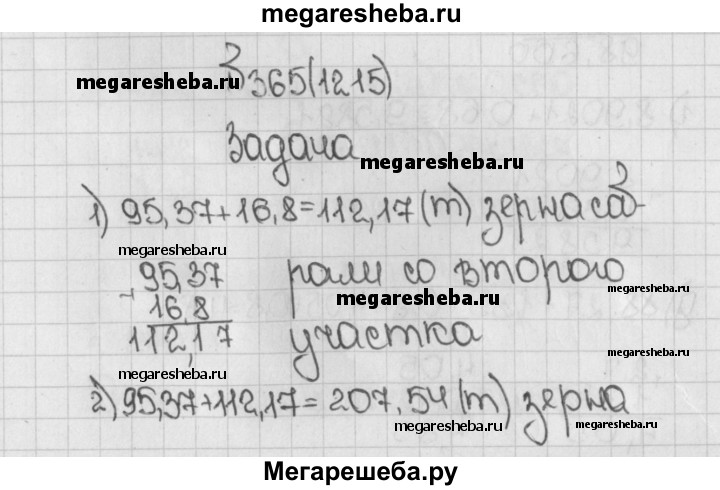 megaresheba.ru
365(1215)
megaresheba.ru
Задача
megaresheba.ru
1) 95,37+16,8=112,17(т) зерна соб-
megaresheba.ru
95,37 рали со второго
+ 16,8 megaresheba.ru
112,17 участка
megaresheba.ru
megaresheba.ru
2) 95,37+112,17=207,54(т) зерна
megaresheba.ru
megaresheba.ru
Мегарешеба.ру